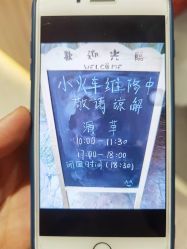 歡迎光臨
WELCOME
小火车维修中
敬请谅解
10:00-11:30
17:00-18:00
闭园时间(18:30)